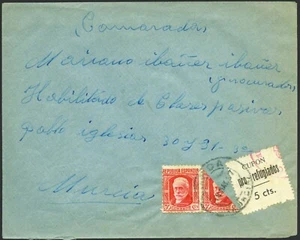 (Camarada)
Mariano ibañez ibañez
(procurador)
Habilitado de Clases pasivas
pablo iglesias 30 y 31-3º
Murcia
CUPÓN
pro-refugiados
5 cts.